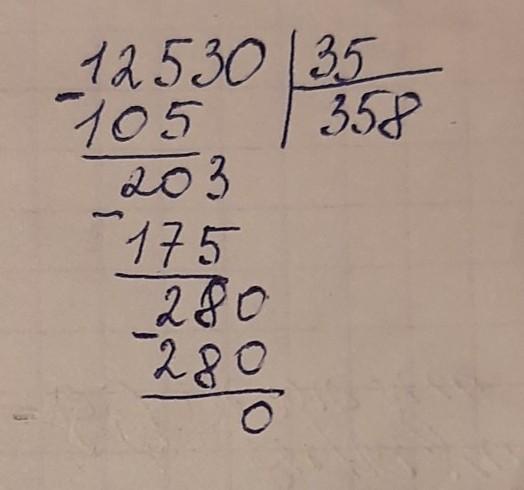 12530 | 35
-105 358
203
-175
280
-280
0